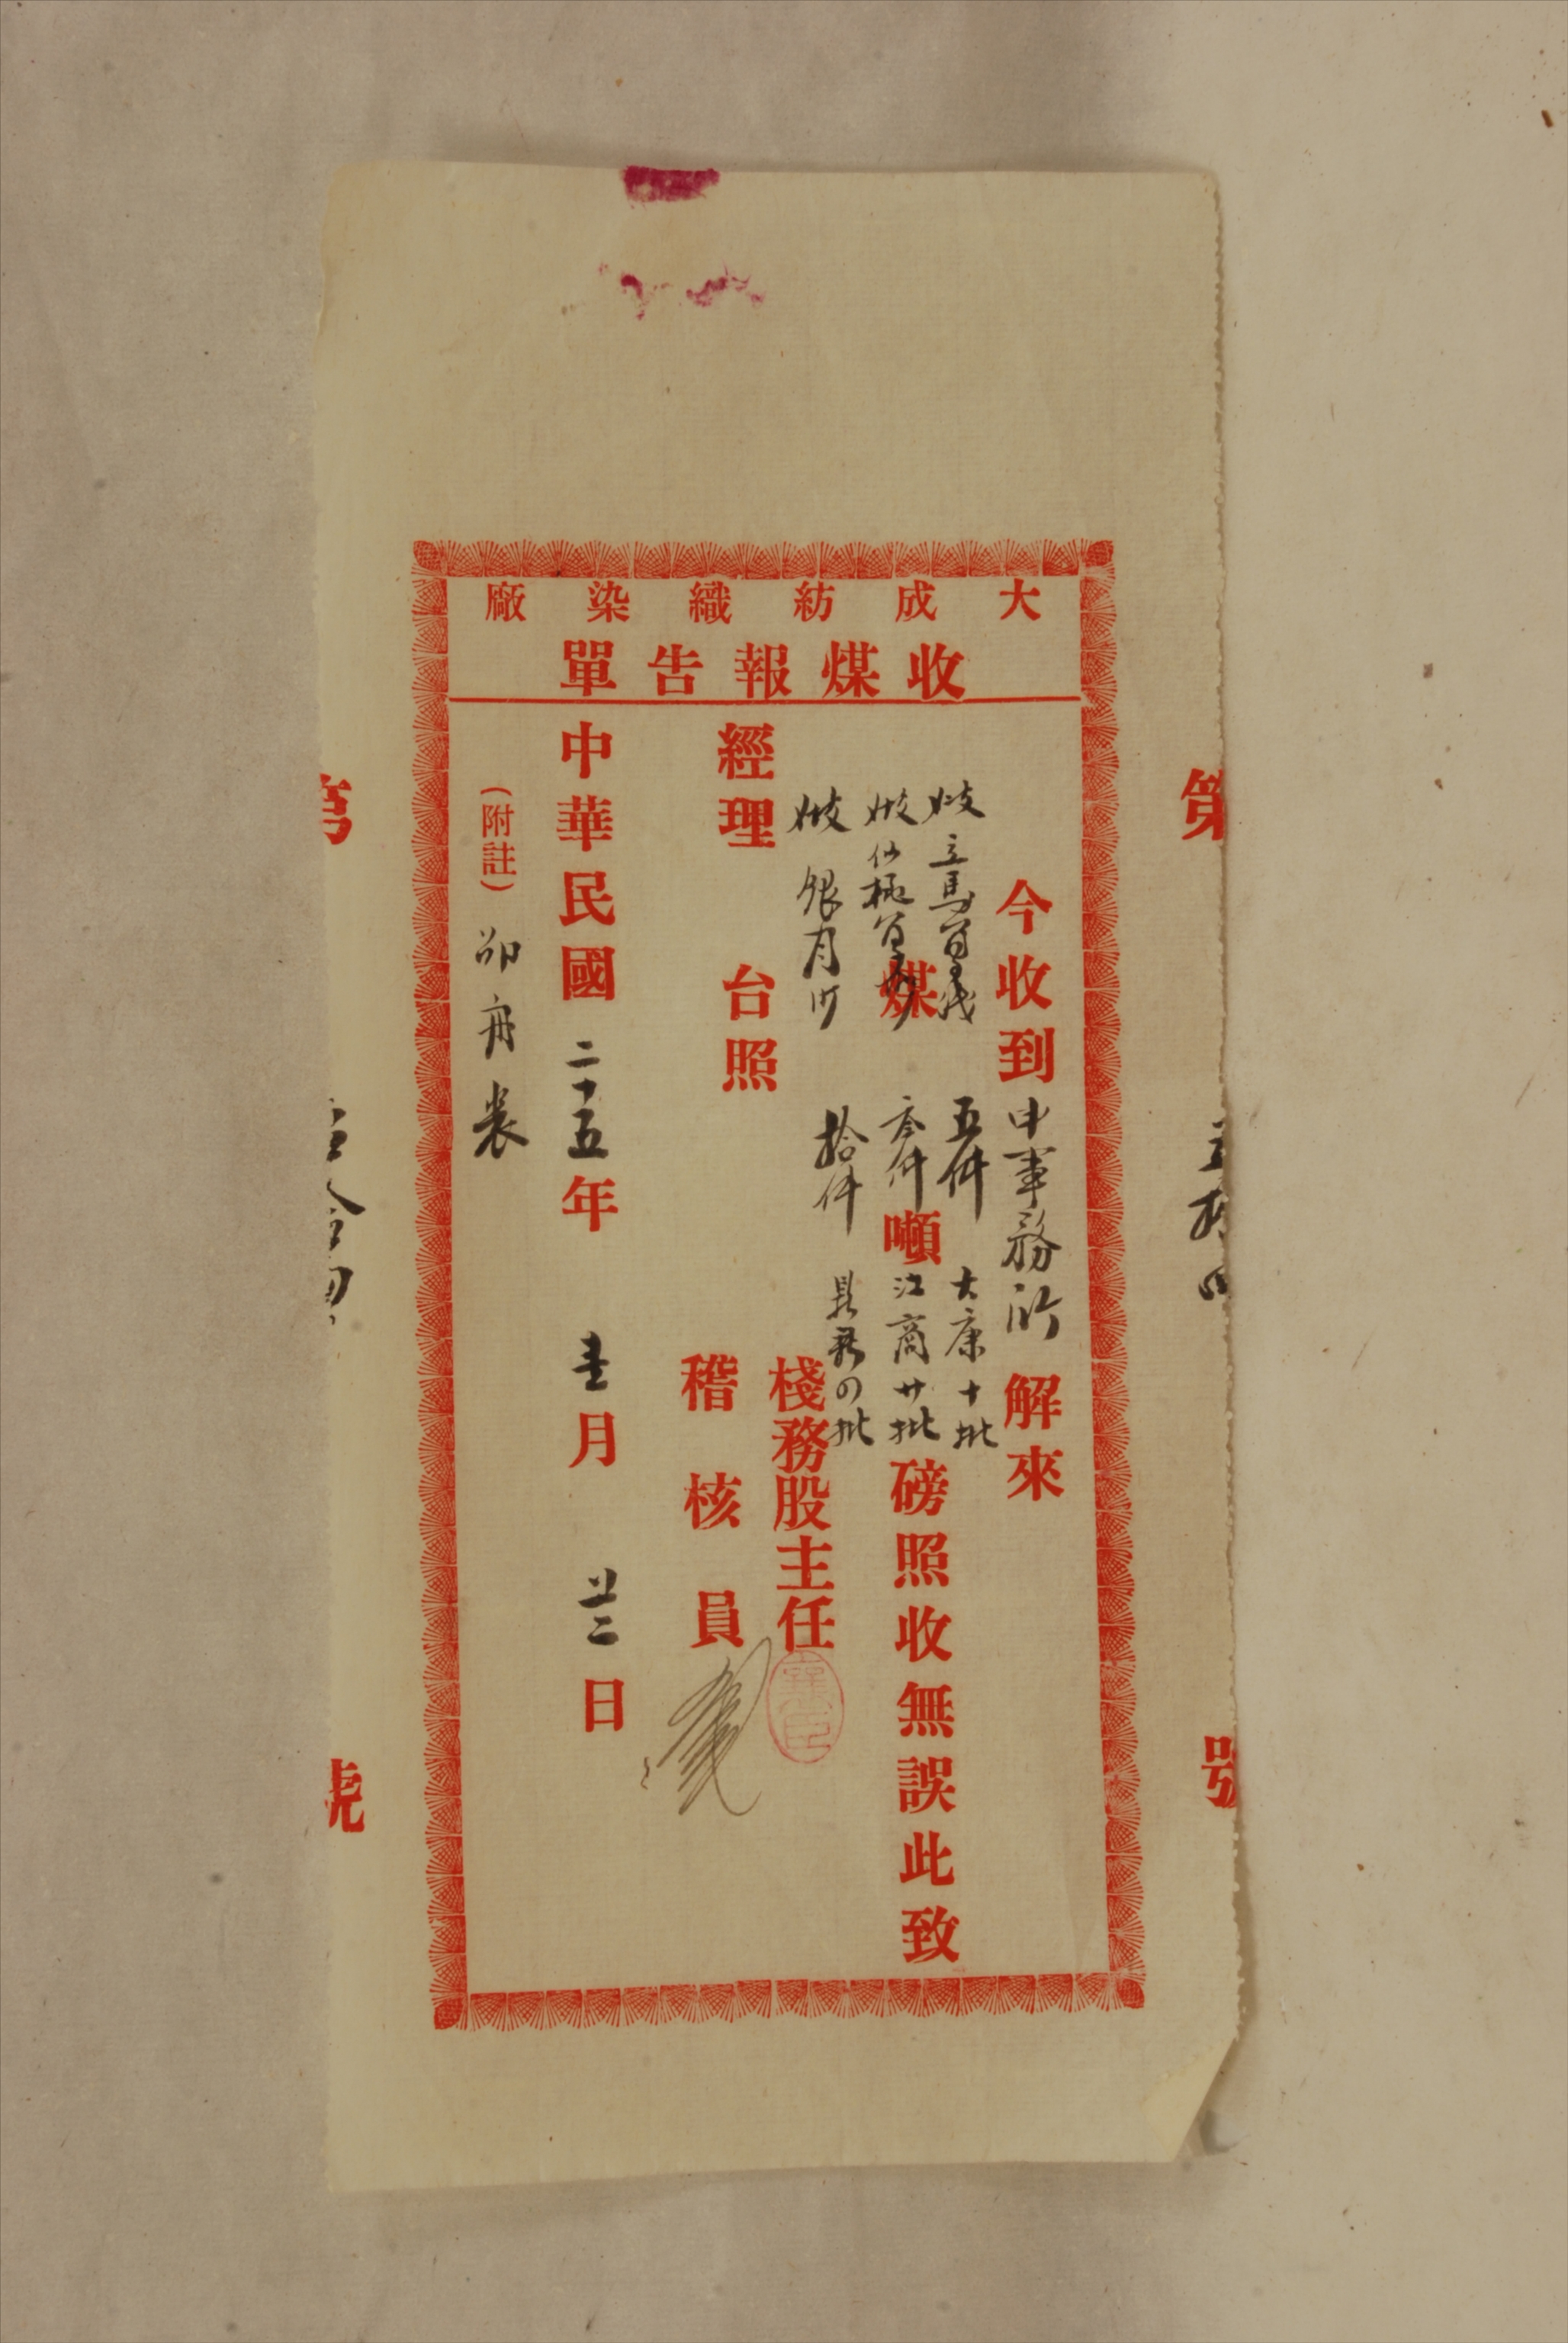 大成紡織染廠
收煤報告單
第 五拾四 號
今收到申事務所解來
立馬 五件 大康十批
煤 叁件 噸 江商廿批 磅照收無誤此致
銀月 拾件 四批
經理 台照
棧務股主任
稽核員
中華民國二十五年壹月廿二日
(附註) 舟裝
號